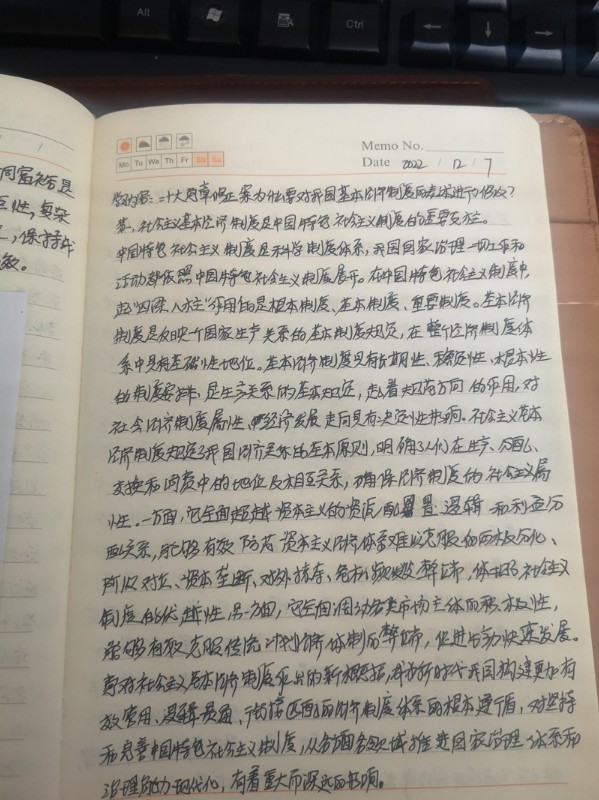 Alt
Ctrl
Memo No.
Mo Tu We Th Fr Sa Su
Date 2022 / 12 / 7
二十大党章修正案为什么要对我国基本经济制度的表述进行修改？
答，社会主义基本经济制度是中国特色社会主义制度的重要支柱。
中国特色社会主义制度是科学制度体系，我国国家治理一切工作和
活动都依照中国特色社会主义制度展开。在中国特色社会主义制度中，
起四梁八柱作用的是根本制度、基本制度、重要制度。基本经济
制度是反映一个国家生产关系的基本制度规定，在整个经济制度体
系中具有基础性地位。基本经济制度具有长期性、稳定性、根本性
的制度安排，是生产关系的基本规定，起着规范方向的作用，对
社会经济制度属性、经济发展走向具有决定性影响。社会主义基本
经济制度规定了我国经济关系的基本原则，明确了人们在生产、分配、
交换和消费中的地位及相互关系，确保经济制度的社会主义属
性。一方面，它全面超越资本主义的资源配置逻辑和利益分
配关系，能够有效防范资本主义经济体系难以克服的两极分化、
资本垄断、对外掠夺、危机频发弊端，体现了社会主义
制度的优越性。另一方面，它全面调动各类市场主体的积极性，
能够有效克服传统计划经济体制的弊端，促进生产力快速发展。
社会主义基本经济制度的新概括，新时代我国构建更加有
效管用、逻辑贯通、衔接匹配的经济制度体系的根本遵循，对坚持
和完善中国特色社会主义制度，从各方面各领域推进国家治理体系和
治理能力现代化，有着重大而深远的影响。